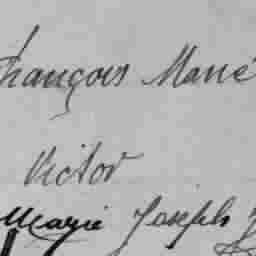 françois Marié
Victor
Marie Joseph